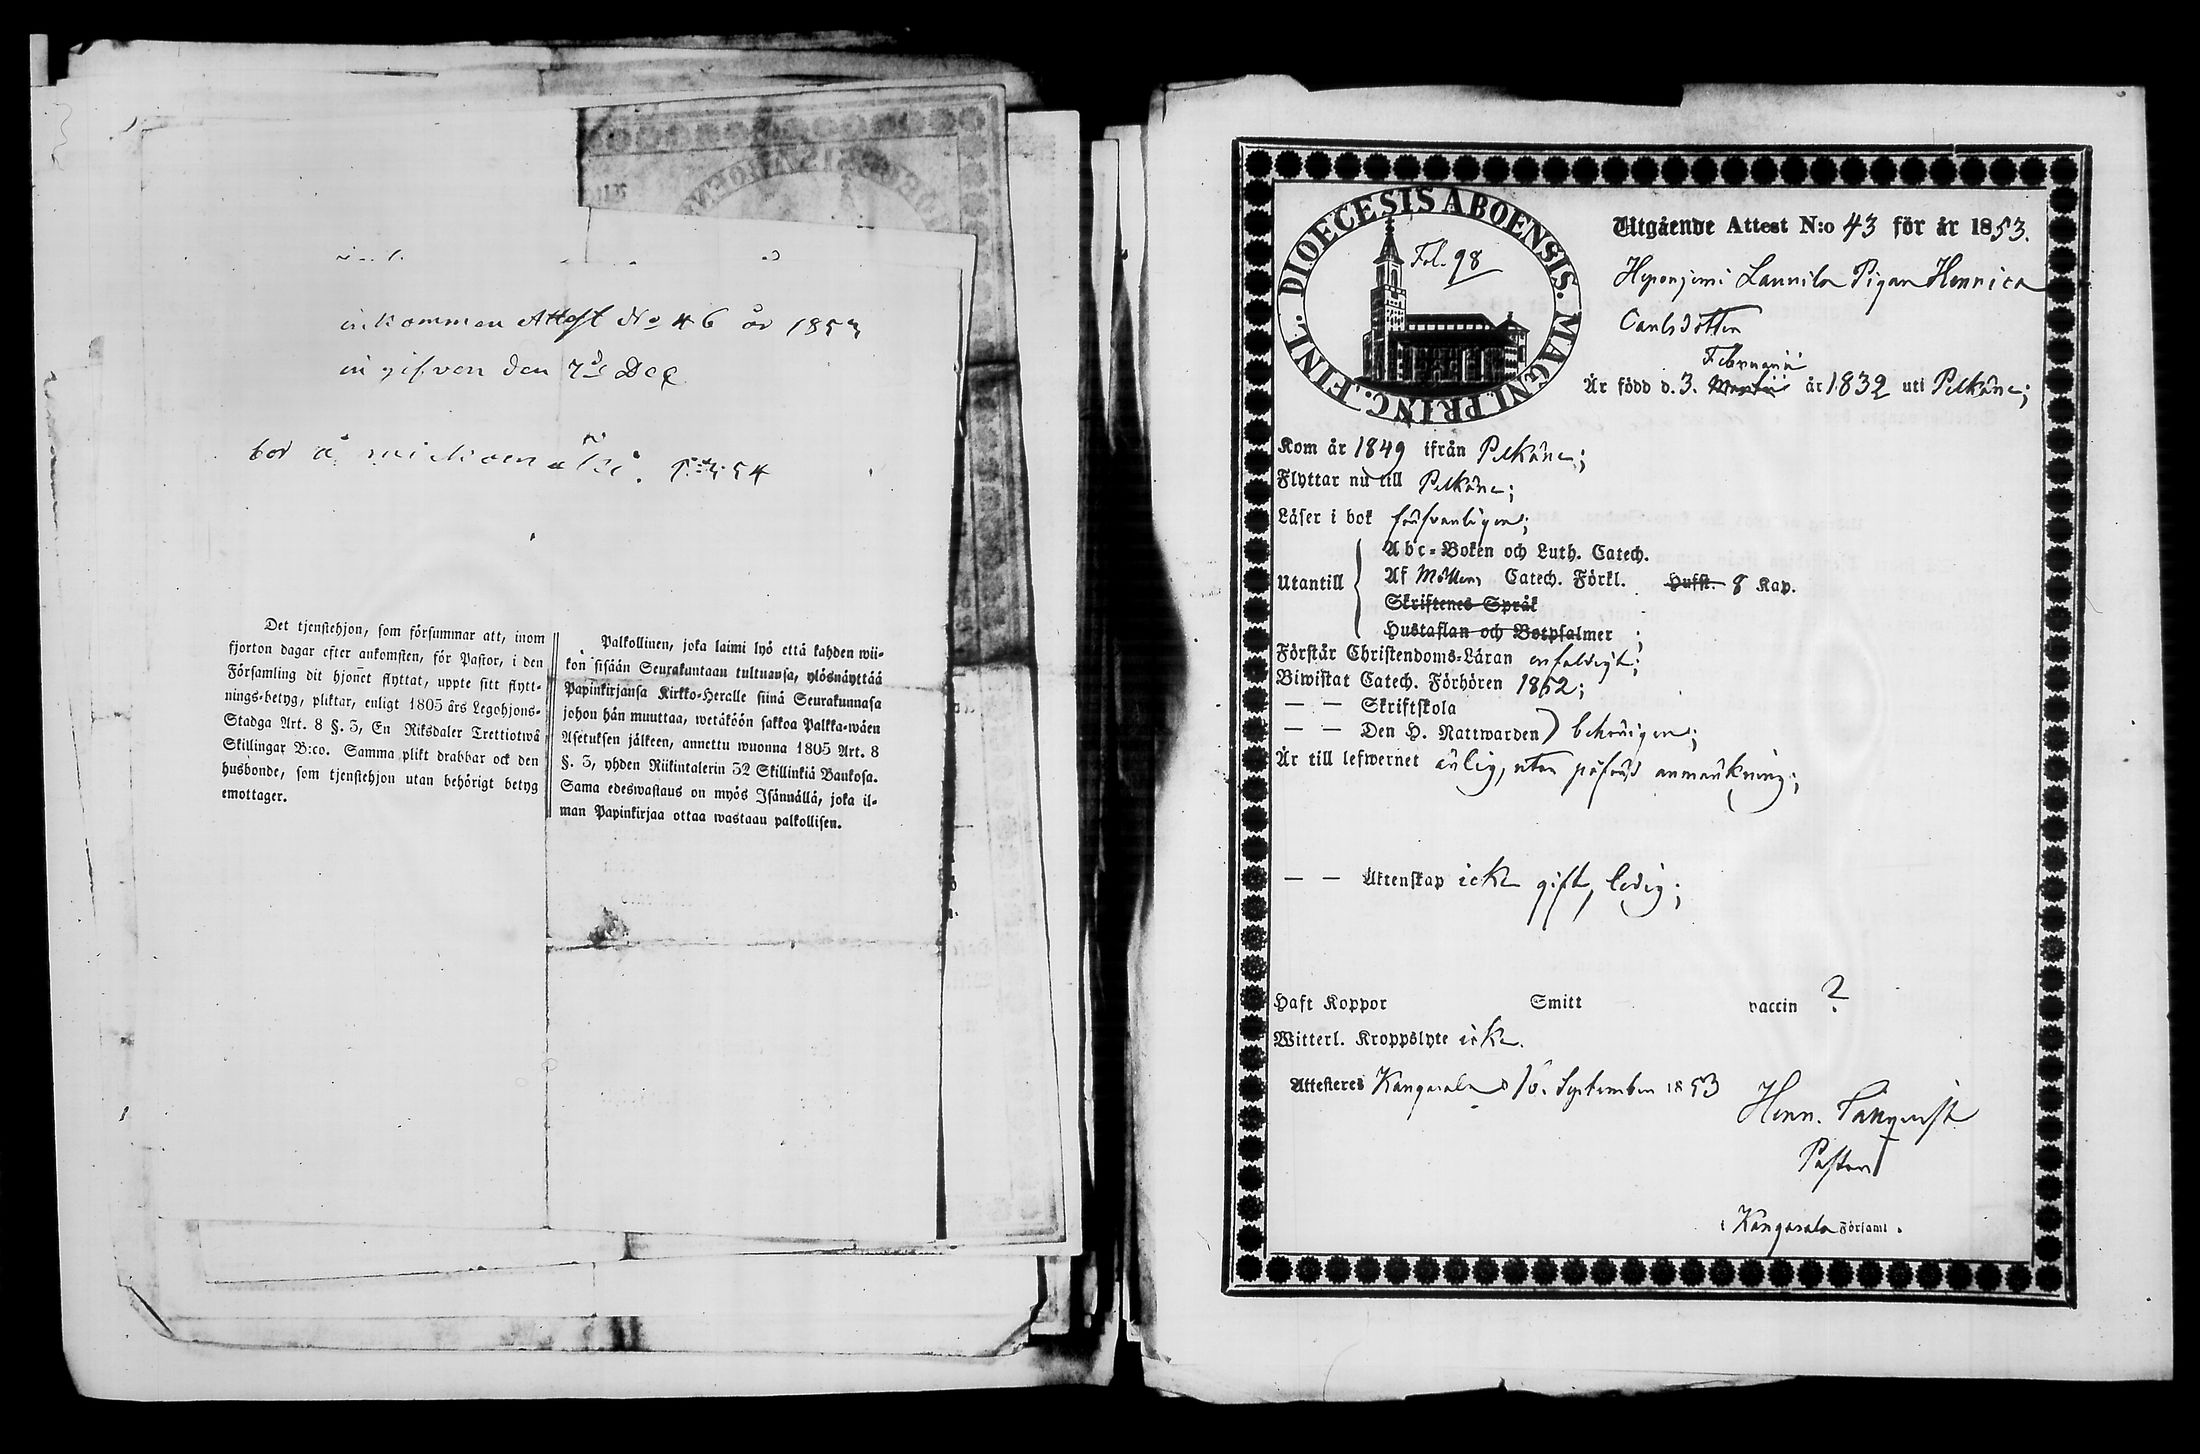 inkommen Attest No 46 år 1853
ingifven den 7d Dec
bor å
Det tjenstehjon, som försummar att, inom
fjorton dagar efter ankomsten, för Pastor, i den
Församling dit hjonet flyttat, uppte sitt flytt-
nings-betyg, pliktar, enligt 1805 års Legohjons-
Stadga Art. 8 §. 3, En Riksdaler Trettiotwå
Skillingar B:co. Samma plikt drabbar ock den
husbonde, som tjenstehjon utan behörigt betyg
emottager.
Palkollinen, joka laimi lyö että kahden wii-
kon sisään Seurakuntaan tultuansa, ylösnäyttää
Papinkirjansa Kirkko-Heralle siinä Seurakunnasa
johon hän muuttaa, wetäköön sakkoa Palkka-wäen
Asetuksen jälkeen, annettu wuonna 1805 Art. 8
§. 3, yhden Riikintalerin 32 Skillinkiä Bankosa.
Sama edeswastaus on myös Isännällä, joka il-
man Papinkirjaa ottaa wastaan palkollisen.
DIOECESIS ABOENSIS. MAGNI PRINC. FINL.
Fol. 98
Utgående Attest N:o 43 för år 1853.
Heponjemi Laurila Pigan Henrica
Carlsdotter
Februarii
Är född d. 3. Martii år 1832 uti Pelkäne;
Kom år 1849 ifrån Pelkäne;
Flyttar nu till Pelkäne;
Läser i bok försvarligen;
Abc-Boken och Luth. Catech.
Utantill Af Möllers Catech. Förkl. Hufst. 8 Kap.
Skriftenes Språk
Hustaflan och Botpsalmer ;
Förstår Christendoms-Läran enfaldigt;
Biwistat Catech. Förhören 1852;
— — Skriftskola
— — Den H. Nattwarden } behörigen;
Är till lefwernet ärlig, utan påförd anmärkning;
— — Äktenskap icke gift, ledig;
Haft Koppor Smitt vaccin ?
Witterl. Kroppslyte icke.
Attesteres Kangasala d 16. September 1853
Henr.
Pastor
i Kangasala Församl.